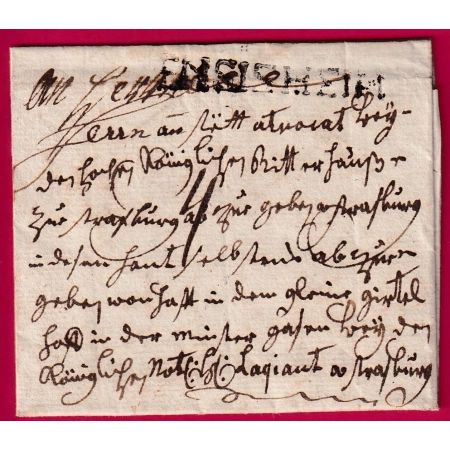 ENSISHEIM
An Herrn
Herrn anstött atvocat bey
den hochen Königlichen Ritterhauße
zue strasburg ab zue geben a strasburg
4
in desen hant selbstens ab zue
geben wonhafft in dem gleine girtel
hoff in der minster gasen bey den
Königlichen Not: H: Laqiant a strasburg